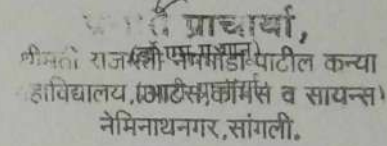 प्राचार्या,
श्रीमती राजमती पाटील कन्या
महाविद्यालय,(आर्टस,कॉमर्स व सायन्स)
नेमिनाथनगर,सांगली.